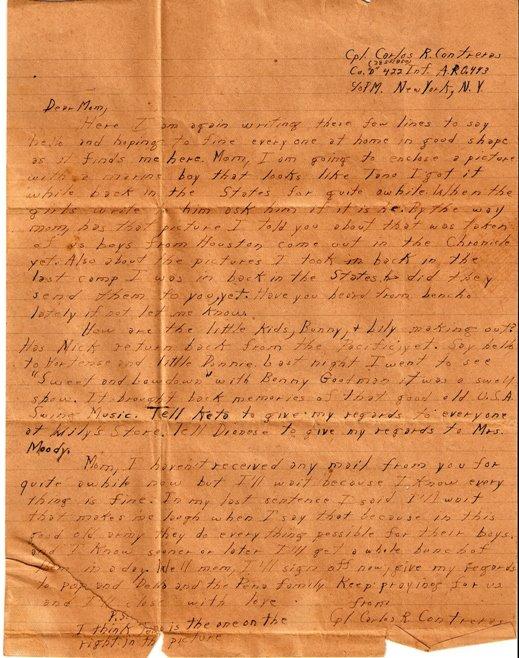 Cpl. Carlos R. Contreras
Co. "D" 422 Inf. A.P.O. 443
c/o P.M. New York, N.Y
Dear Mom,
Here I am again writing these few lines to say
hello and hoping to fine every one at home in good shape
as it finds me here. Mom, I am going to enclose a picture
with a marine boy that looks like Tano I got it
while back in the States for quite awhile. When the
girls write him ask him if it is he. By the way
mom, has that picture I told you about that was taken
of us boys from Houston come out in the Chronicle
yet. Also about the pictures I took in back in the
last camp I was in back in the States, did they
send them to you yet. Have you heard from bencho
lately if not let me know.
How are the little kids, Benny, & Lily making out?
Has Nick return back from the Pacific yet. Say hello
to Hortense and little Donnie. Last night I went to see
"Sweet and Lowdown" with Benny Goodman it was a swell
show. It brought back memories of that good old U.S.A
Swing Music. Tell Keto to give my regards to everyone
at Lily's Store. Tell Dionese to give my regards to Mrs.
Moody.
Mom, I haven't received any mail from you for
quite awhile now but I'll wait because I know every
thing is fine. In my last sentence I said I'll wait
that makes me laugh when I say that because in this
good old army they do everything possible for their boys.
and I know sooner or later I'll get a whole bunch of
them in a day. Well mom, I'll sign off now, give my regards
to Pop and and the Pena family. Keep praying for us
and I close with love from
P.S. Cpl Carlos R. Contreras
I think Tano is the one on the
right. In the picture